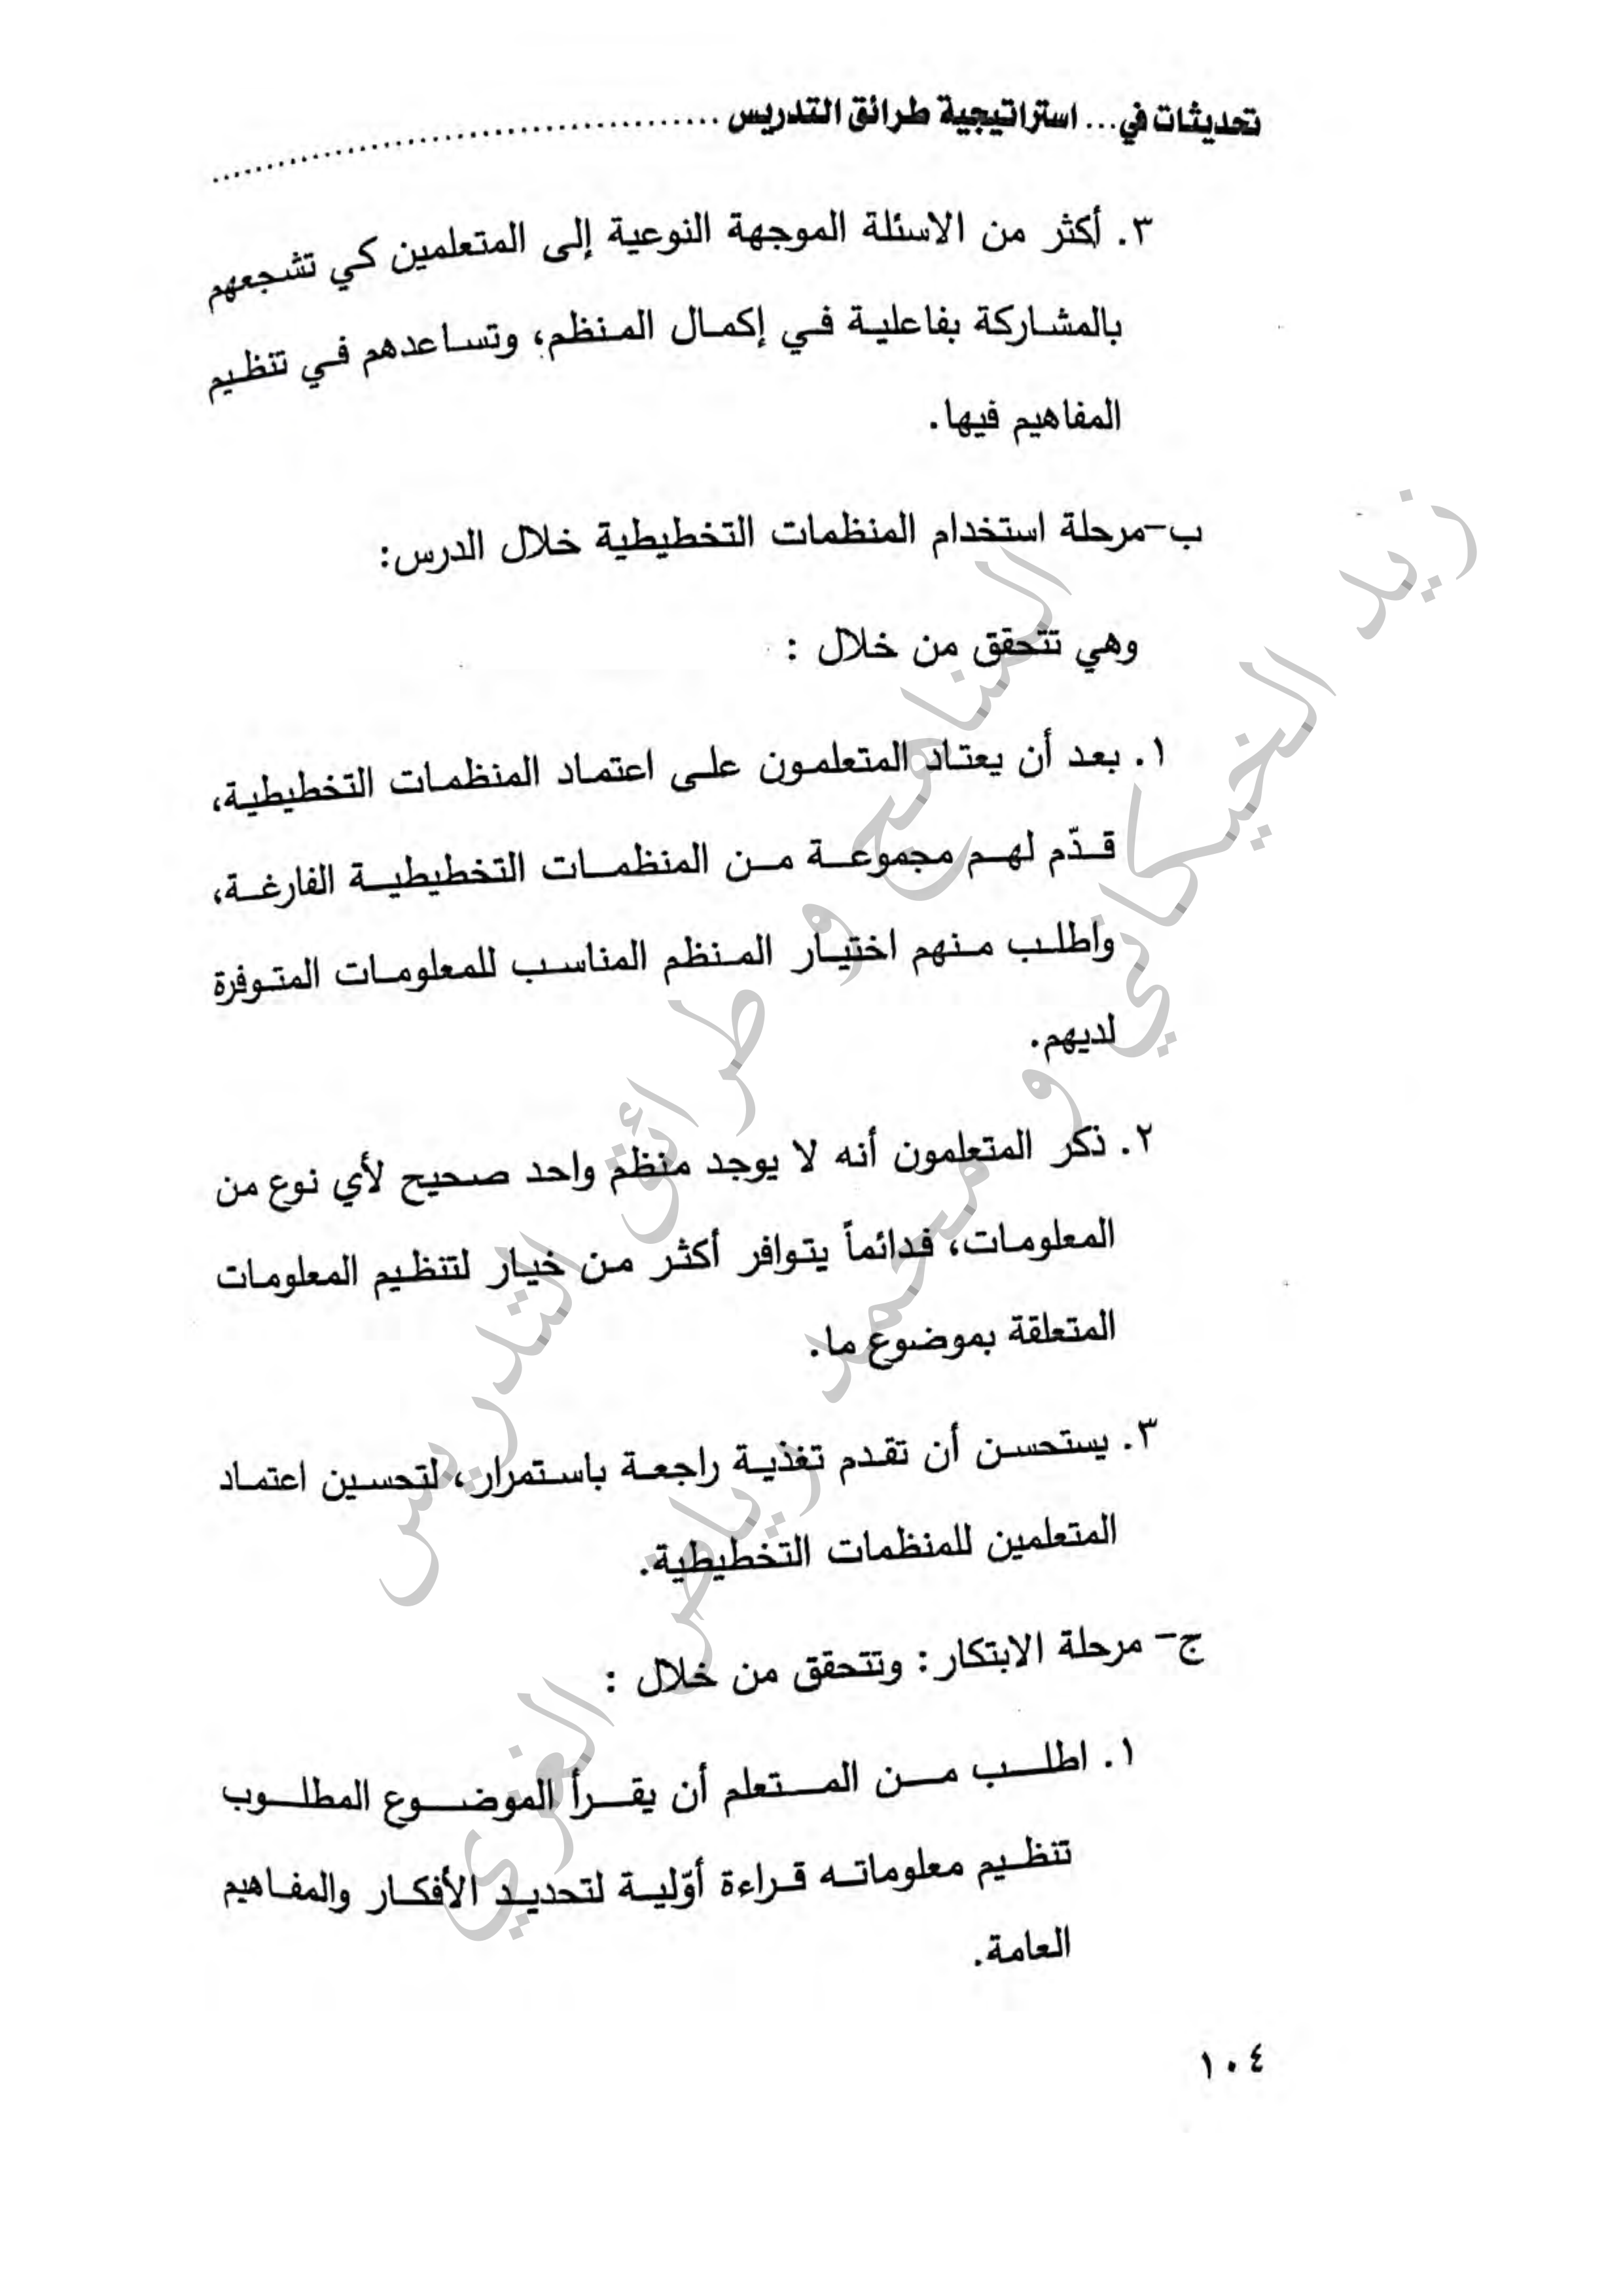 تحديثات في... استراتيجية طرائق التدريس ......................................
٣. أكثر من الاسئلة الموجهة النوعية إلى المتعلمين كي تشجعهم
بالمشاركة بفاعلية في إكمال المنظم، وتساعدهم في تنظيم
المفاهيم فيها.
ب-مرحلة استخدام المنظمات التخطيطية خلال الدرس:
وهي تتحقق من خلال :
١. بعد أن يعتاد المتعلمون على اعتماد المنظمات التخطيطية،
قدّم لهم مجموعة من المنظمات التخطيطية الفارغة،
واطلب منهم اختيار المنظم المناسب للمعلومات المتوفرة
لديهم.
٢. ذكر المتعلمون أنه لا يوجد منظم واحد صحيح لأي نوع من
المعلومات، فدائماً يتوافر أكثر من خيار لتنظيم المعلومات
المتعلقة بموضوع ما.
٣. يستحسن أن تقدم تغذية راجعة باستمرار، لتحسين اعتماد
المتعلمين للمنظمات التخطيطية.
ج- مرحلة الابتكار: وتتحقق من خلال :
١. اطلب من المتعلم أن يقرأ الموضوع المطلوب
تنظيم معلوماته قراءة أوّلية لتحديد الأفكار والمفاهيم
العامة.
١٠٤
المناهج و طرائق التدريس
زيد الخيكاني و محمد رياض الغزي